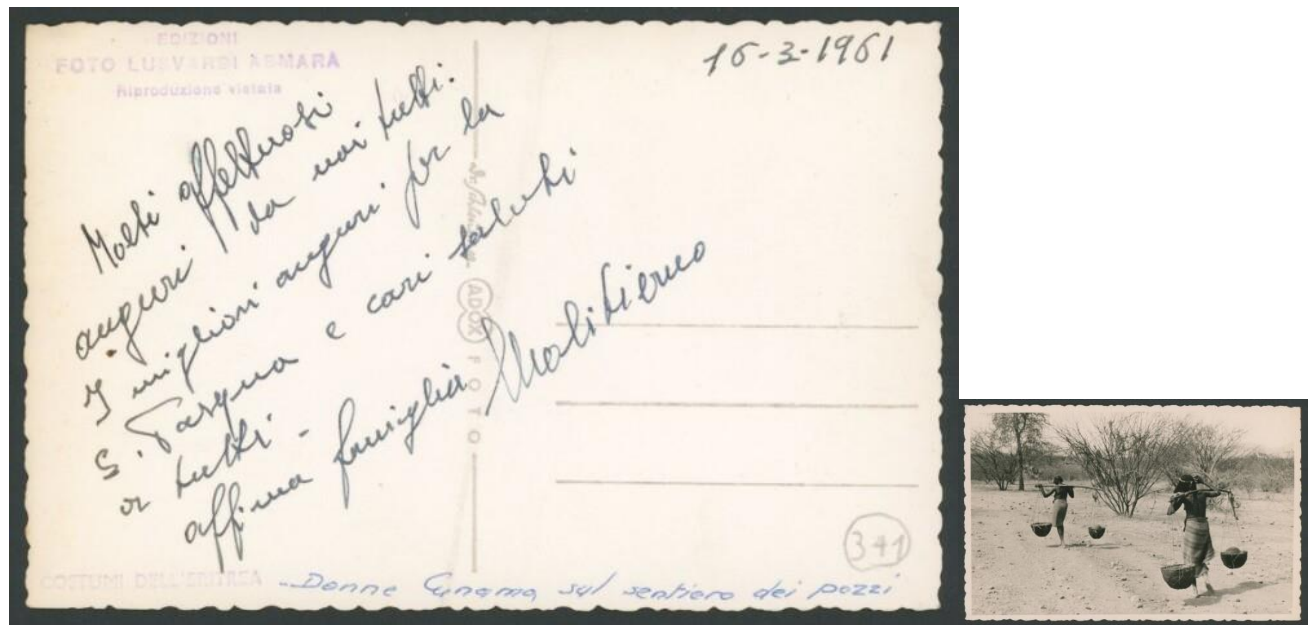 EDIZIONI
FOTO LUSVARDI ASMARA
Riproduzione vietata
16-3-1961
Molti affettuosi
auguri da noi tutti.
I migliori auguri per la
S. Pasqua e cari saluti
a tutti -
aff.ma famiglia
ADOX FOTO
341
COSTUMI DELL'ERITREA - Donne Cunama sul sentiero dei pozzi